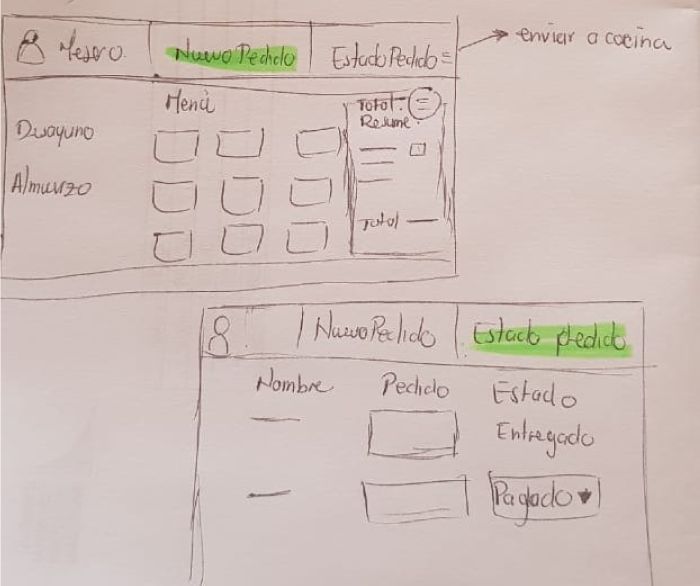 Mesero
Nuevo Pedido
Estado Pedido
enviar a cocina
Menú
Desayuno
Almuerzo
Total:
Resume
Total
Nuevo Pedido
Estado pedido
Nombre
Pedido
Estado
Entregado
Pagado